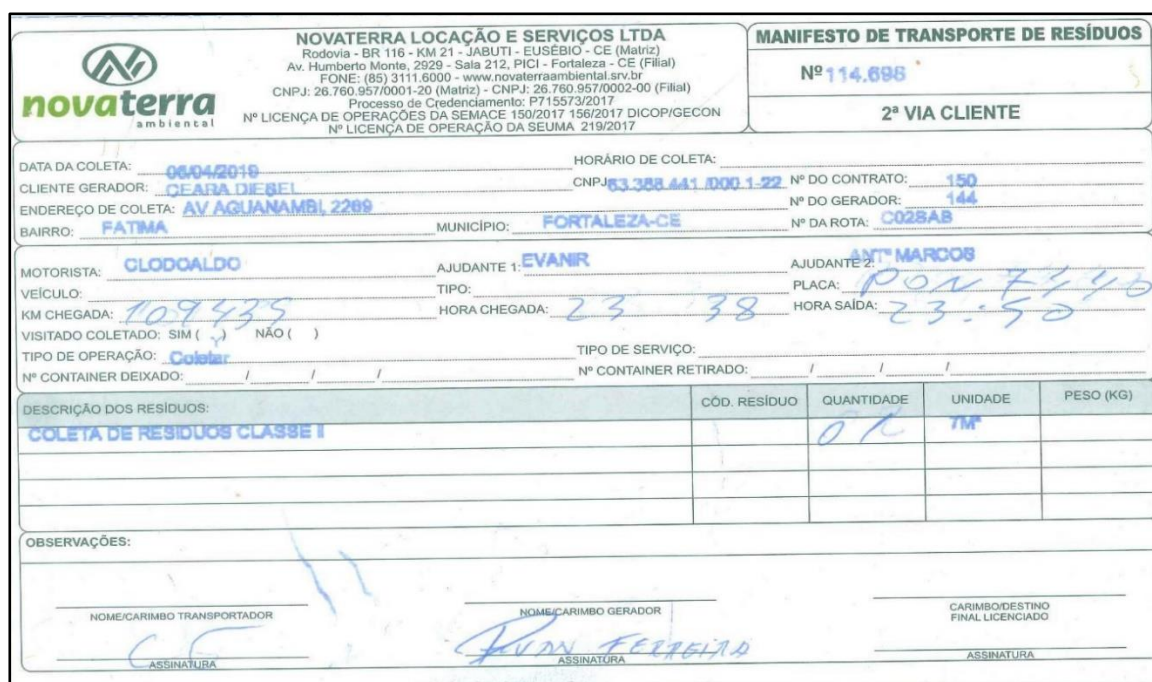 NOVATERRA LOCAÇÃO E SERVIÇOS LTDA
Rodovia - BR 116 - KM 21 - JABUTI - EUSÉBIO - CE (Matriz)
Av. Humberto Monte, 2929 - Sala 212, PICI - Fortaleza - CE (Filial)
FONE: (85) 3111.6000 - www.novaterraambiental.srv.br
CNPJ: 26.760.957/0001-20 (Matriz) - CNPJ: 26.760.957/0002-00 (Filial)
Processo de Credenciamento: P715573/2017
Nº LICENÇA DE OPERAÇÕES DA SEMACE 150/2017 156/2017 DICOP/GECON
Nº LICENÇA DE OPERAÇÃO DA SEUMA 219/2017
novaterra
ambiental
MANIFESTO DE TRANSPORTE DE RESÍDUOS
Nº 114.698
2ª VIA CLIENTE
DATA DA COLETA: 06/04/2019 HORÁRIO DE COLETA:
CLIENTE GERADOR: CEARA DIESEL CNPJ 63.388.441 /000.1-22 Nº DO CONTRATO: 150
ENDEREÇO DE COLETA: AV AGUANAMBI, 2269 Nº DO GERADOR: 144
BAIRRO: FATIMA MUNICÍPIO: FORTALEZA-CE Nº DA ROTA: C028AB
MOTORISTA: CLODOALDO AJUDANTE 1: EVANIR AJUDANTE 2: ANTº MARCOS
VEÍCULO: TIPO: PLACA: PON 7440
KM CHEGADA: 109435 HORA CHEGADA: 23 38 HORA SAÍDA: 23:50
VISITADO COLETADO: SIM ( ) NÃO ( )
TIPO DE OPERAÇÃO: Coletar TIPO DE SERVIÇO:
Nº CONTAINER DEIXADO: / / / Nº CONTAINER RETIRADO: / / /
DESCRIÇÃO DOS RESÍDUOS: CÓD. RESÍDUO QUANTIDADE UNIDADE PESO (KG)
COLETA DE RESIDUOS CLASSE II 7M³
OBSERVAÇÕES:
NOME/CARIMBO TRANSPORTADOR NOME/CARIMBO GERADOR CARIMBO/DESTINO
FINAL LICENCIADO
FERREIRA
ASSINATURA ASSINATURA ASSINATURA